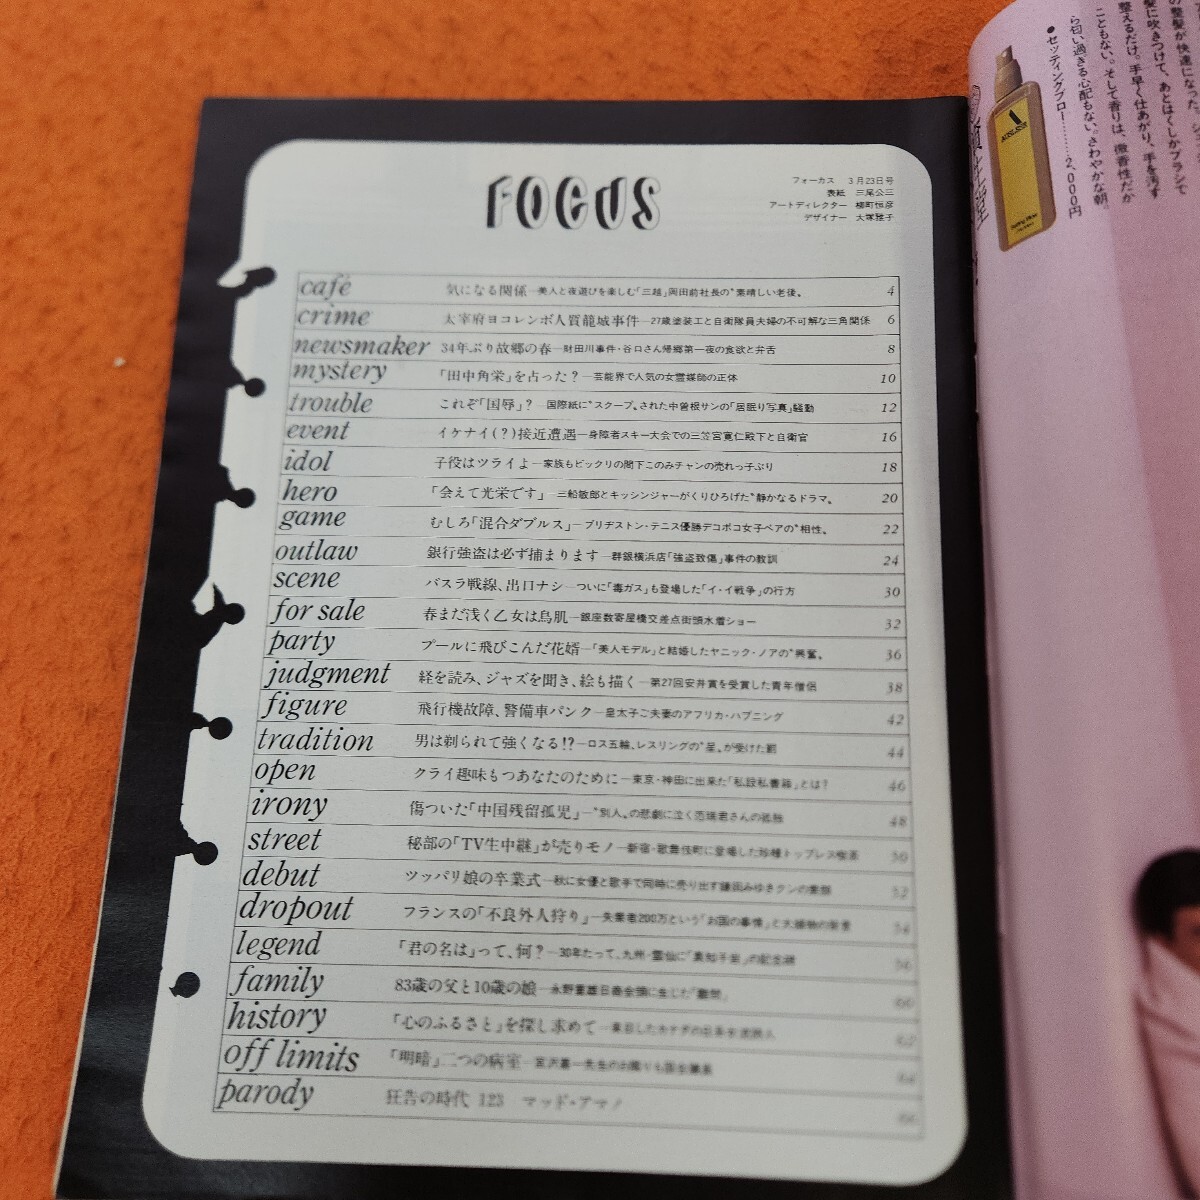 FOCUS
フォーカス 3月23日号
表紙 三尾公三
アートディレクター 柳町恒彦
デザイナー 大塚雅子
café 気になる関係―美人と夜遊びを楽しむ「三越」岡田前社長の〝素晴しい老後〟 4
crime 太宰府ヨコレンボ人質籠城事件―27歳塗装工と自衛隊員夫婦の不可解な三角関係 6
newsmaker 34年ぶり故郷の春―財田川事件・谷口さん帰郷第一夜の食欲と弁舌 8
mystery 「田中角栄」を占った?―芸能界で人気の女霊媒師の正体 10
trouble これぞ「国辱」?―国際紙に〝スクープ〟された中曽根サンの「居眠り写真」騒動 12
event イケナイ(?)接近遭遇―身障者スキー大会での三笠宮寛仁殿下と自衛官 16
idol 子役はツライよ―家族もビックリの間下このみチャンの売れっ子ぶり 18
hero 「会えて光栄です」―三船敏郎とキッシンジャーがくりひろげた〝静かなるドラマ〟 20
game むしろ「混合ダブルス」―ブリヂストン・テニス優勝デコボコ女子ペアの〝相性〟 22
outlaw 銀行強盗は必ず捕まります―群銀横浜店「強盗致傷」事件の教訓 24
scene バスラ戦線、出口ナシ―ついに「毒ガス」も登場した「イ・イ戦争」の行方 30
for sale 春まだ浅く乙女は鳥肌―銀座数寄屋橋交差点街頭水着ショー 32
party プールに飛びこんだ花婿―「美人モデル」と結婚したヤニック・ノアの〝興奮〟 36
judgment 経を読み、ジャズを聞き、絵も描く―第27回安井賞を受賞した青年僧侶 38
figure 飛行機故障、警備車パンク―皇太子ご夫妻のアフリカ・ハプニング 42
tradition 男は剃られて強くなる!?―ロス五輪、レスリングの〝星〟が受けた罰 44
open クライ趣味もつあなたのために―東京・神田に出来た「私設私書箱」とは? 46
irony 傷ついた「中国残留孤児」―〝別人〟の悲劇に泣く 瑞君さんの孤独 48
street 秘部の「TV生中継」が売りモノ―新宿・歌舞伎町に登場した珍種トップレス喫茶 50
debut ツッパリ娘の卒業式―秋に女優と歌手で同時に売り出す鎌田みゆきクンの素顔 52
dropout フランスの「不良外人狩り」―失業者200万という「お国の事情」と大捕物の背景 54
legend 「君の名は」って、何?―30年たって、九州・雲仙に「真知子岩」の記念碑 56
family 83歳の父と10歳の娘―永野重雄日商会頭に生じた「難問」 60
history 「心のふるさと」を探し求めて―来日したカナダの日系 62
off limits 「明暗」二つの病室―宮沢喜一先生のお隣りも 64
parody 狂告の時代 123 マッド・アマノ 66
の整髪が快適になった。
髪に吹きつけて、あとはくしかブラシで
整えるだけ。手早く仕あがり、手を汚す
こともない。そして香りは、微香性だか
ら匂い過ぎる心配もない。さわやかな朝。
●セッティングブロー………2、000円
資生堂